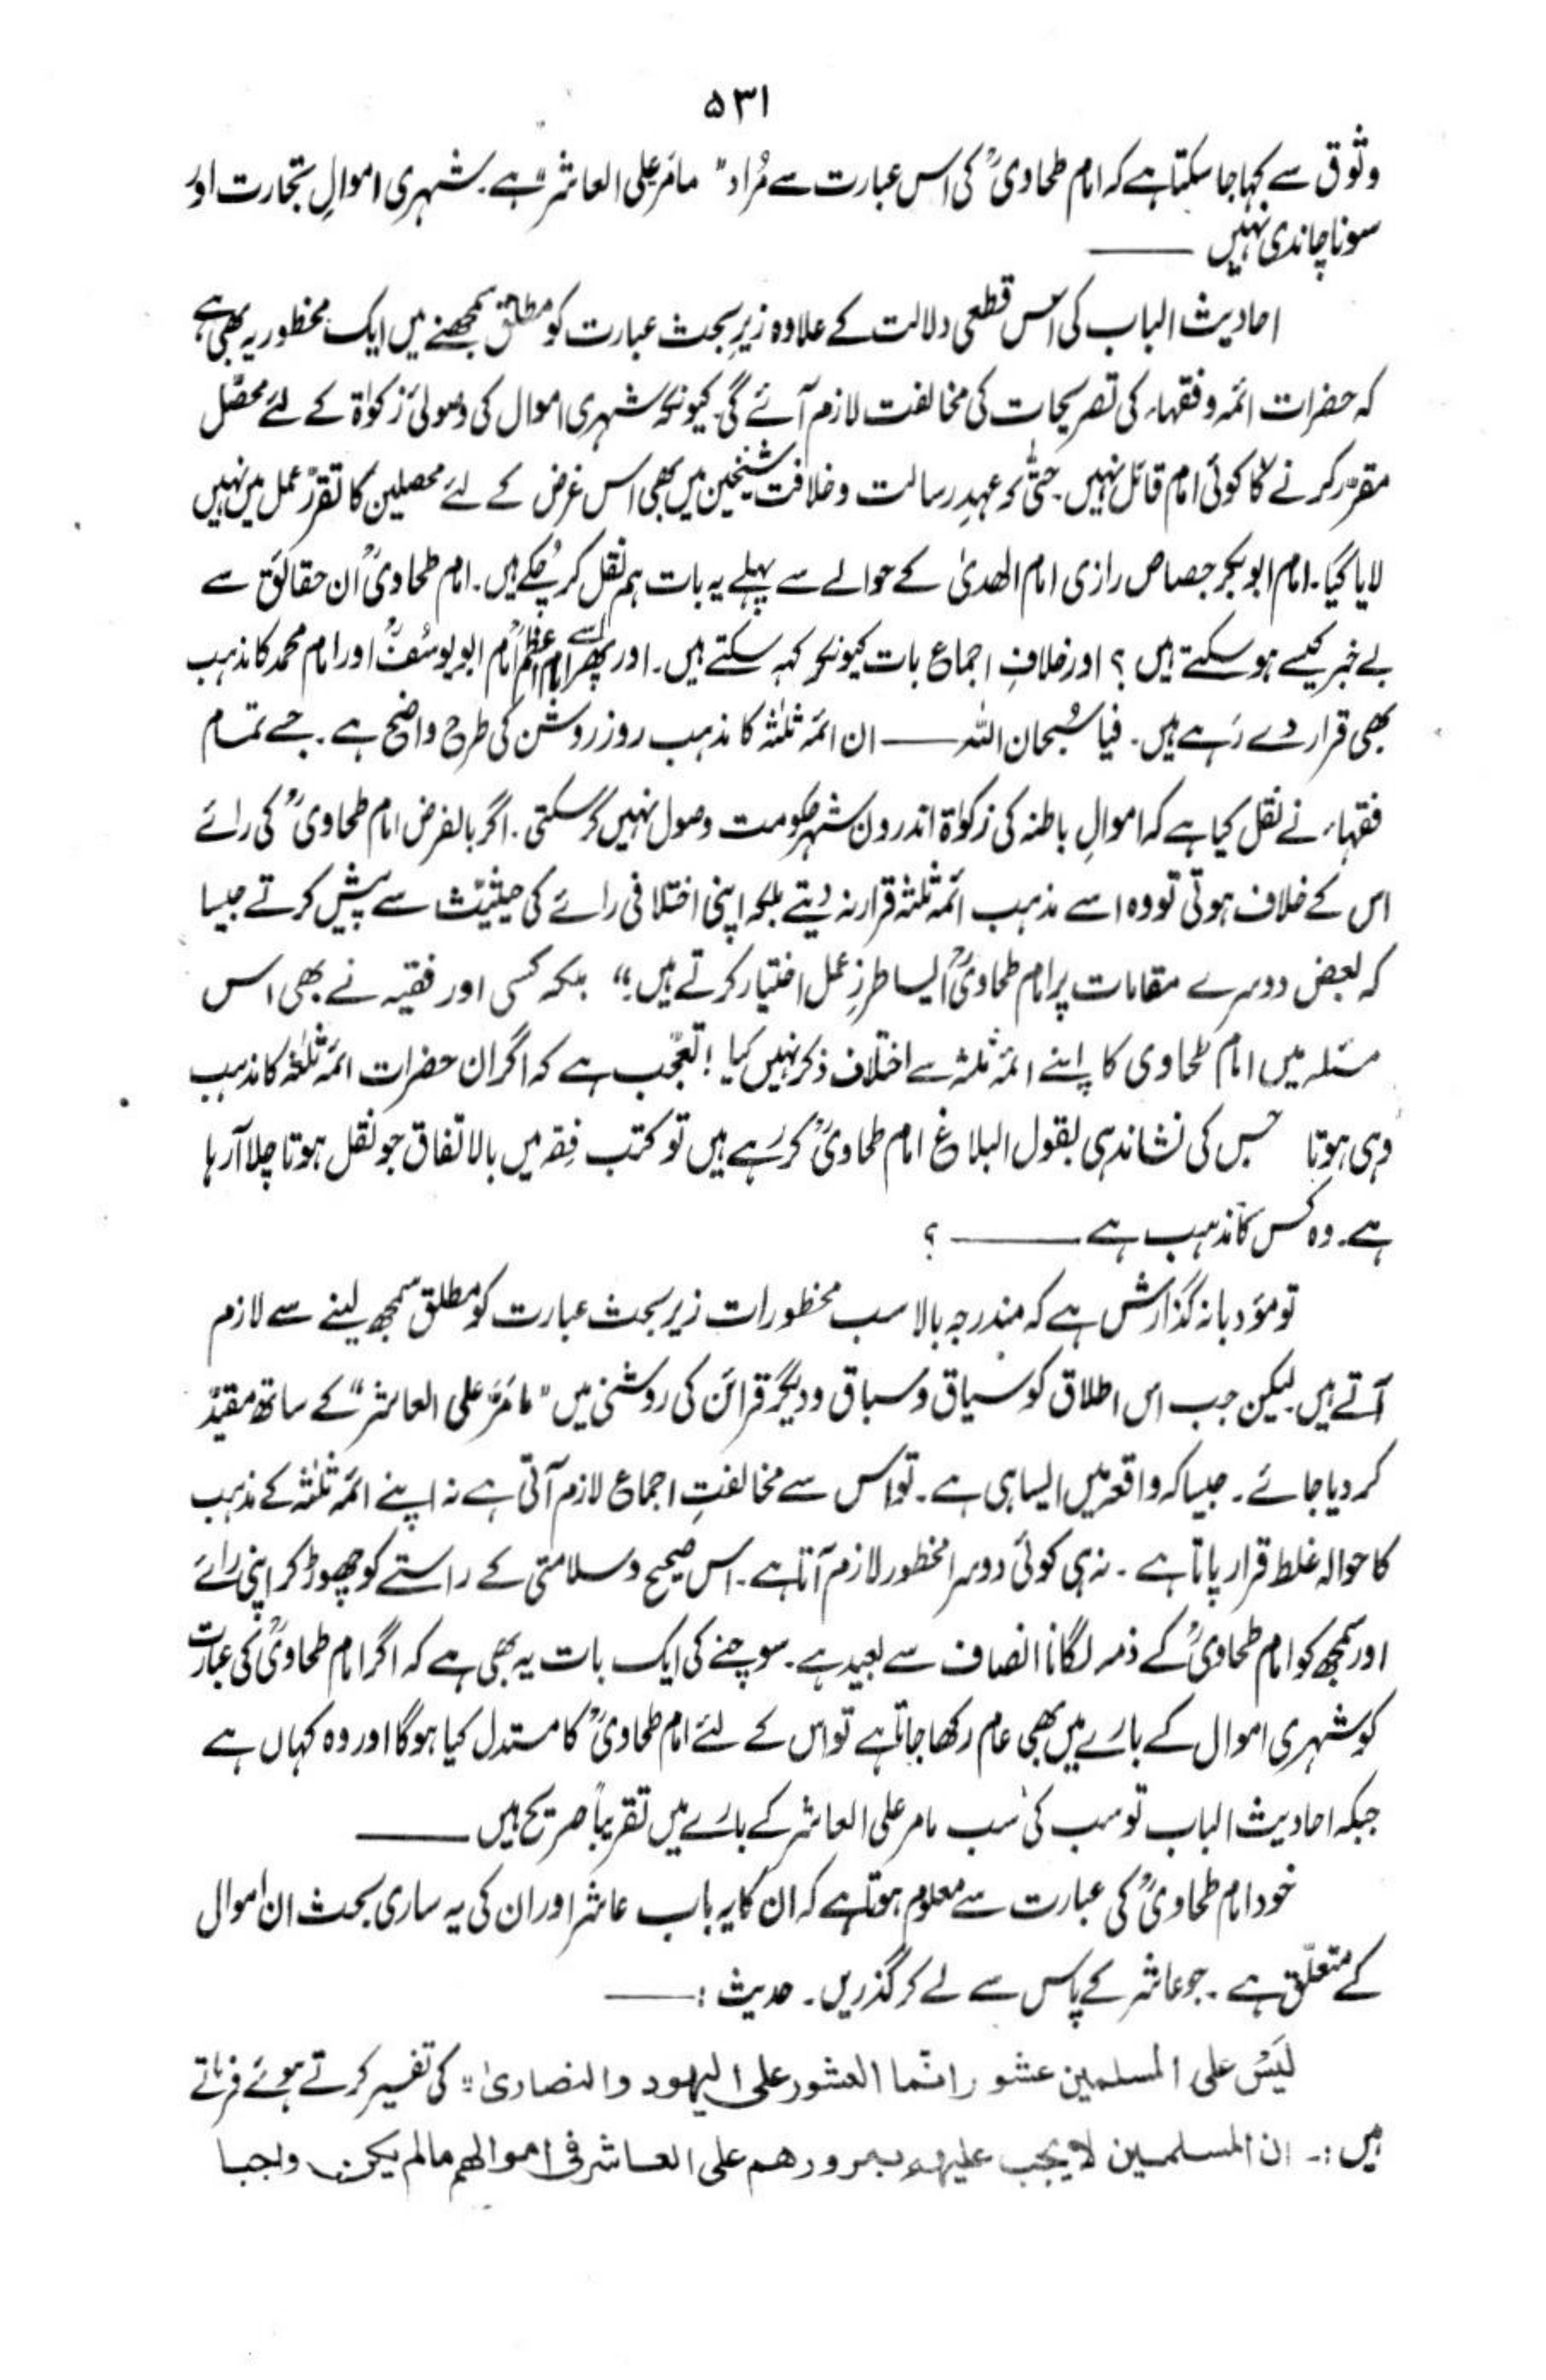 ۵۳۱
وثوق سے کہا جا سکتا ہے کہ امام طحاویؒ کی اس عبارت سے مُراد "مامَرّ علی العاشر" ہے۔ شہری اموالِ تجارت اور
سونا چاندی نہیں ——
احادیث الباب کی اس قطعی دلالت کے علاوہ زیرِ بحث عبارت کو مطلق سمجھنے میں ایک محظور یہ بھی ہے
کہ حضرات ائمہ و فقہاء کی تصریحات کی مخالفت لازم آئے گی۔ کیونکہ شہری اموال کی وصولیٔ زکوٰۃ کے لئے محصّل
مقرّر کرنے کا کوئی امام قائل نہیں۔ حتّٰی کہ عہدِ رسالت و خلافت شیخین میں بھی اس غرض کے لئے محصلین کا تقرّر عمل میں نہیں
لایا گیا۔ امام ابوبکر جصاص رازی امام الھدیٰ کے حوالے سے پہلے یہ بات ہم نقل کر چُکے ہیں۔ امام طحاویؒ ان حقائق سے
بے خبر کیسے ہو سکتے ہیں ؟ اور خلافِ اجماع بات کیونکر کہہ سکتے ہیں۔ اور پھر اسے امام اعظمؒ امام ابویوسُفؒ اور امام محمد کا مذہب
بھی قرار دے رہے ہیں۔ فیا سُبحان اللہ —— ان ائمہ ثلٰثہ کا مذہب روز روشن کی طرح واضح ہے۔ جسے تمام
فقہاء نے نقل کیا ہے کہ اموالِ باطنہ کی زکوٰۃ اندرون شہر حکومت وصول نہیں کر سکتی۔ اگر بالفرض امام طحاویؒ کی رائے
اس کے خلاف ہوتی تو وہ اسے مذہب ائمہ ثلٰثہ قرار نہ دیتے بلکہ اپنی اختلافی رائے کی حیثیّت سے پیش کرتے جیسا
کہ بعض دوسرے مقامات پر امام طحاویؒ ایسا طرزِ عمل اختیار کرتے ہیں۔" بلکہ کسی اور فقیہ نے بھی اس
مسئلہ میں امام طحاوی کا اپنے ائمہ ثلٰثہ سے اختلاف ذکر نہیں کیا ! تعجّب ہے کہ اگر ان حضرات ائمہ ثلٰثہ کا مذہب
وہی ہوتا جس کی نشاندہی بقول البلاغ امام طحاویؒ کر رہے ہیں تو کتب فِقہ میں بالاتفاق جو نقل ہوتا چلا آرہا
ہے۔ وہ کس کا مذہب ہے —— ؟
تو مؤدبانہ گذارش ہے کہ مندرجہ بالا سب محظورات زیر بحث عبارت کو مطلق سمجھ لینے سے لازم
آتے ہیں۔ لیکن جب اس اطلاق کو سیاق و سباق و دیگر قرائن کی روشنی میں "مامَرَّ علی العاشر" کے ساتھ مقیّد
کر دیا جائے۔ جیسا کہ واقعہ میں ایسا ہی ہے۔ تو اس سے مخالفتِ اجماع لازم آتی ہے نہ اپنے ائمہ ثلٰثہ کے مذہب
کا حوالہ غلط قرار پاتا ہے۔ نہ ہی کوئی دوسرا محظور لازم آتا ہے۔ اس صحیح و سلامتی کے راستے کو چھوڑ کر اپنی رائے
اور سمجھ کو امام طحاویؒ کے ذمہ لگانا انصاف سے بعید ہے۔ سوچنے کی ایک بات یہ بھی ہے کہ اگر امام طحاویؒ کی عبارت
کو شہری اموال کے بارے میں بھی عام رکھا جاتا ہے تو اس کے لئے امام طحاویؒ کا مستدل کیا ہوگا اور وہ کہاں ہے
جبکہ احادیث الباب تو سب کی سب مامر علی العاشر کے بارے میں تقریباً صریح ہیں ——
خود امام طحاویؒ کی عبارت سے معلوم ہوتا ہے کہ ان کا یہ باب عاشر اور ان کی یہ ساری بحث ان اموال
کے متعلّق ہے۔ جو عاشر کے پاس سے لے کر گذریں۔ حدیث :——
لَیسَ علی المسلمین عشور انّما العشور علی الیہود والنصاریٰ" کی تفسیر کرتے ہوئے فرماتے
ہیں :۔ ان المسلمین لا یجب علیھم بمرورھم علی العاشر فی اموالھم مالم یکن واجبا